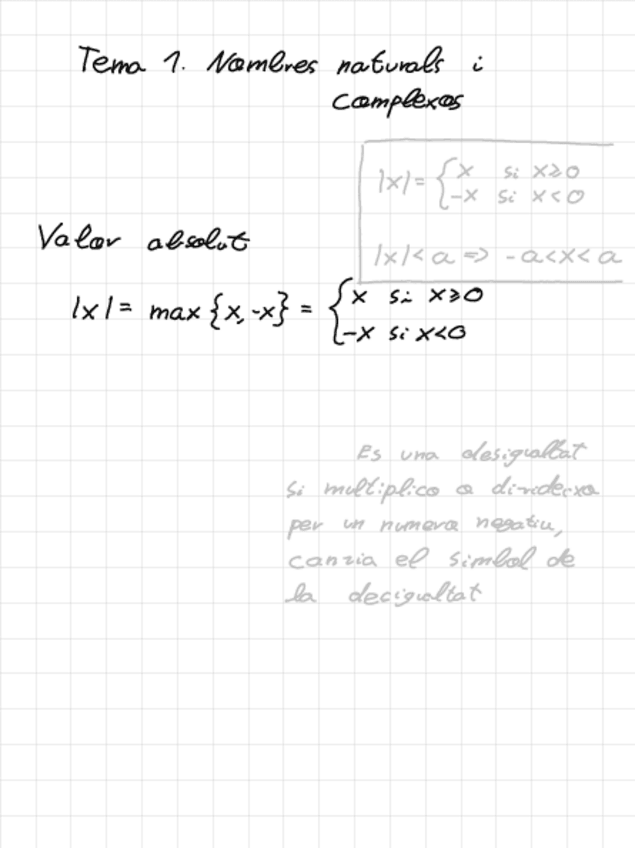 Tema 1. Nombres naturals i
complexos
|x| = { x si x≥0
-x si x<0
|x| < a => -a<x<a
Valor absolut
|x| = max {x,-x} = { x si x≥0
-x si x<0
Es una desigualtat
si multiplico o divideixo
per un numero negatiu,
canzia el simbol de
la decigualtat